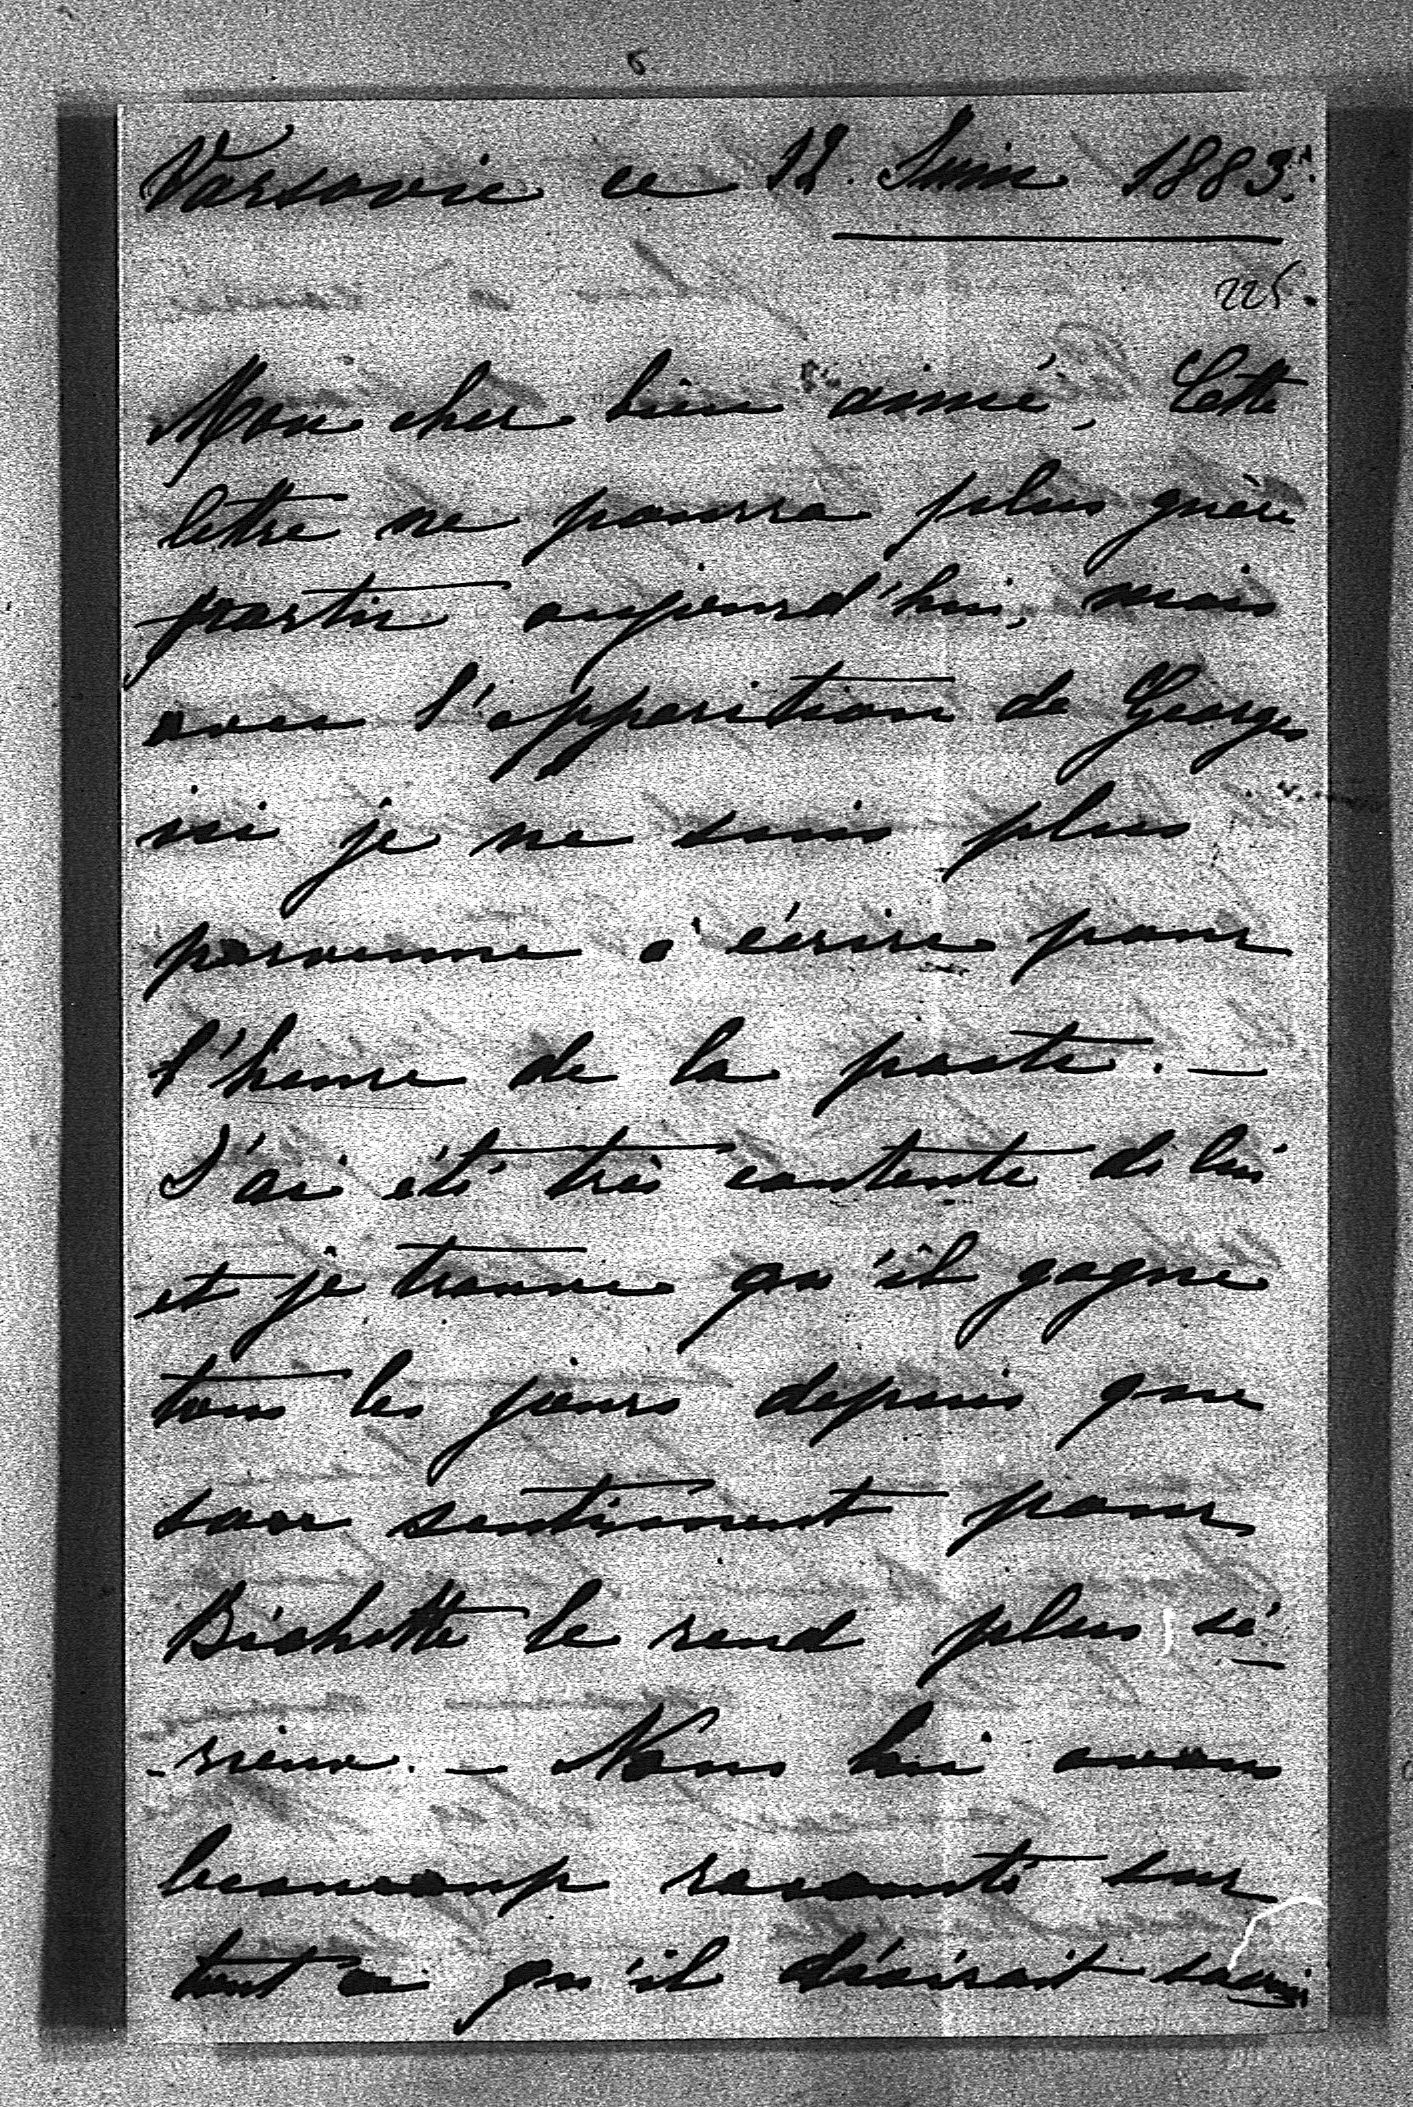 Varsovie ce 12. Juin 1883.
225.
Mon cher bien aimé, Cette
lettre ne pourra plus guère
partir aujourd'hui, mais
avec l'apparition de Georges
ici je ne suis plus
parvenue à écrire pour
l'heure de la poste. —
J'ai été très contente de lui
et je trouve qu'il gagne
tous les jours depuis que
son sentiment pour
Bichette le rend plus sé-
-rieux. — Nous lui avons
beaucoup raconté sur
tout ce qu'il désirait savoir